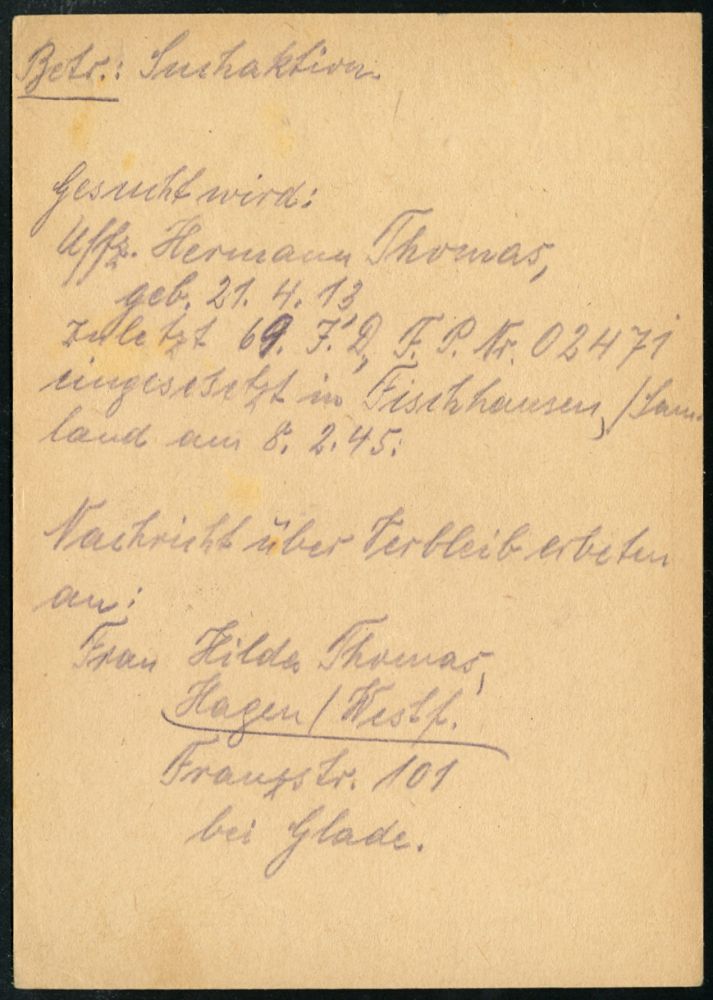 Betr.: Suchaktion.
Gesucht wird:
Uffz. Hermann Thomas,
geb. 21. 4. 13
zuletzt 69. I. D., F. P. Nr. 02471
eingesetzt in Fischhausen, /Sam-
land am 8. 2. 45.
Nachricht über Verbleib erbeten
an:
Frau Hilda Thomas,
Hagen / Westf.
Franzstr. 101
bei Glade.